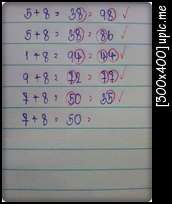 5+8 = 38 = 98 ✓
5+8 = 38 = 86
1+8 = 94 = 44 ✓
9+8 = 72 = 77 ✓
7+8 = 50 = 35 ✓
7+8 = 50 =
[500x400] upic.me